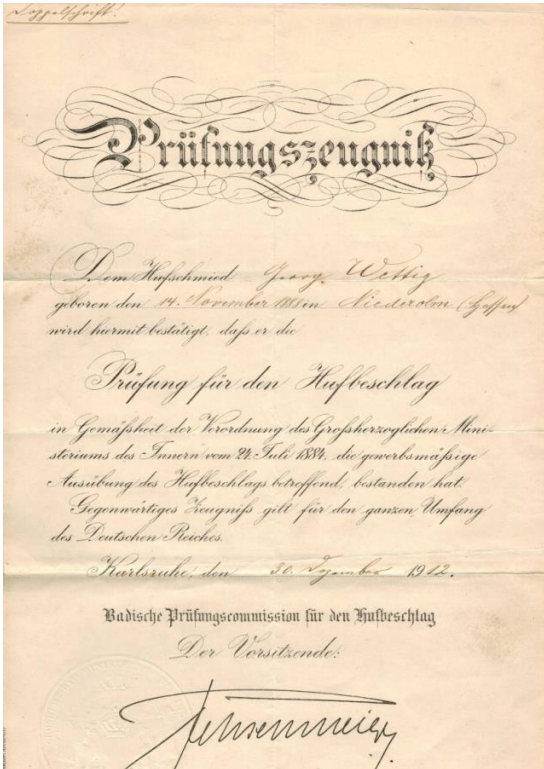 Doppelschrift.
Prüfungszeugniß
Dem Hufschmied Georg Wettig
geboren den 14. November in Niederolm (Hessen)
wird hiermit bestätigt, daß er die
Prüfung für den Hufbeschlag
in Gemäßheit der Verordnung des Großherzoglichen Mini-
steriums des Innern vom 24. Juli 1884, die gewerbsmäßige
Ausübung des Hufbeschlags betreffend, bestanden hat.
Gegenwärtiges Zeugniß gilt für den ganzen Umfang
des Deutschen Reiches.
Karlsruhe, den 30. Dezember 1912.
Badische Prüfungscommission für den Hufbeschlag
Der Vorsitzende: